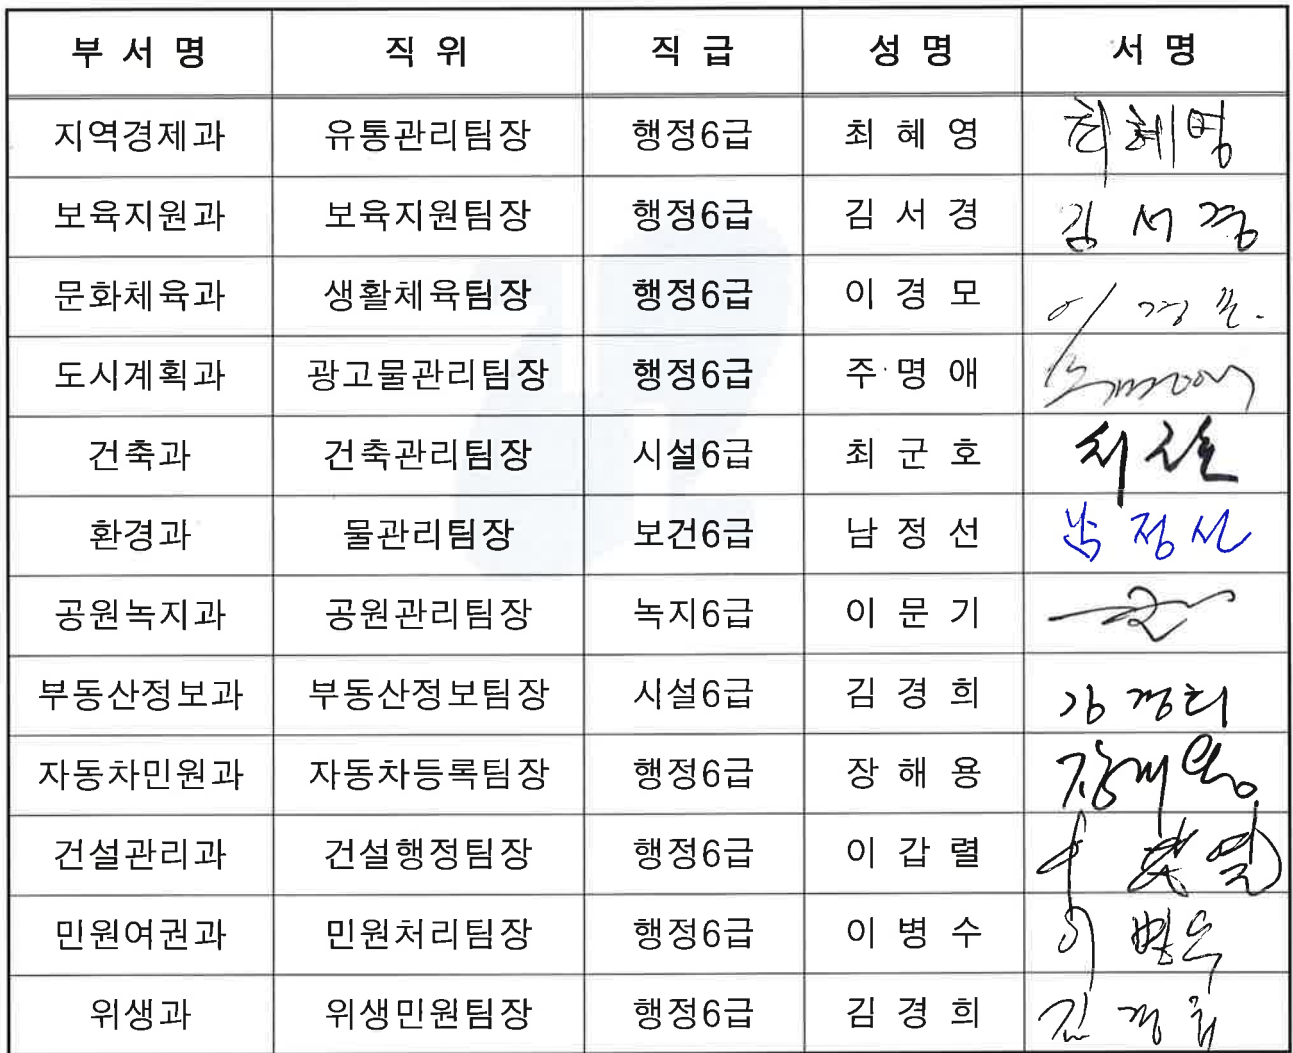 부 서 명 직 위 직 급 성 명 서 명
지역경제과 유통관리팀장 행정6급 최 혜 영 최혜영
보육지원과 보육지원팀장 행정6급 김 서 경 김 서 경
문화체육과 생활체육팀장 행정6급 이 경 모 이 경 모
도시계획과 광고물관리팀장 행정6급 주 명 애
건축과 건축관리팀장 시설6급 최 군 호
환경과 물관리팀장 보건6급 남 정 선 남 정 선
공원녹지과 공원관리팀장 녹지6급 이 문 기
부동산정보과 부동산정보팀장 시설6급 김 경 희 김 경희
자동차민원과 자동차등록팀장 행정6급 장 해 용
건설관리과 건설행정팀장 행정6급 이 갑 렬
민원여권과 민원처리팀장 행정6급 이 병 수 이 병수
위생과 위생민원팀장 행정6급 김 경 희 김 경 희